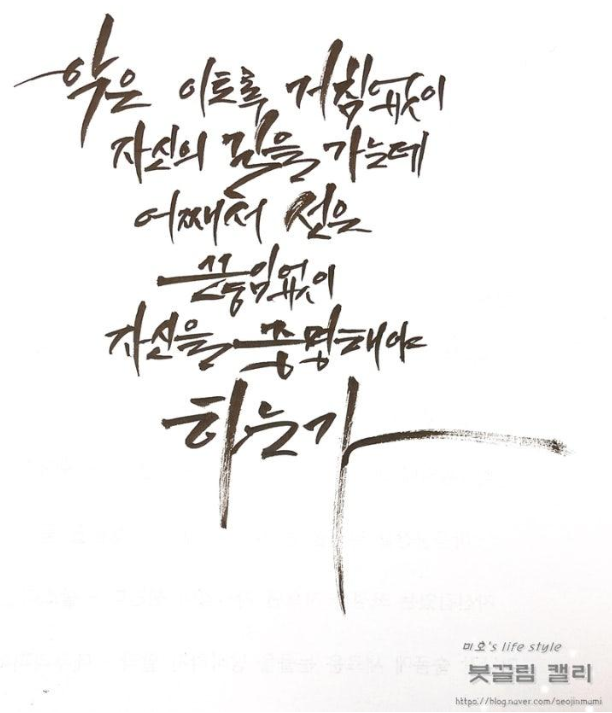 악은 이토록 거침없이
자신의 길을 가는데
어째서 선은
끊임없이
자신을 증명해야
하는가
미호's life style
붓끌림 캘리
https://blog.naver.com/seojinmumi